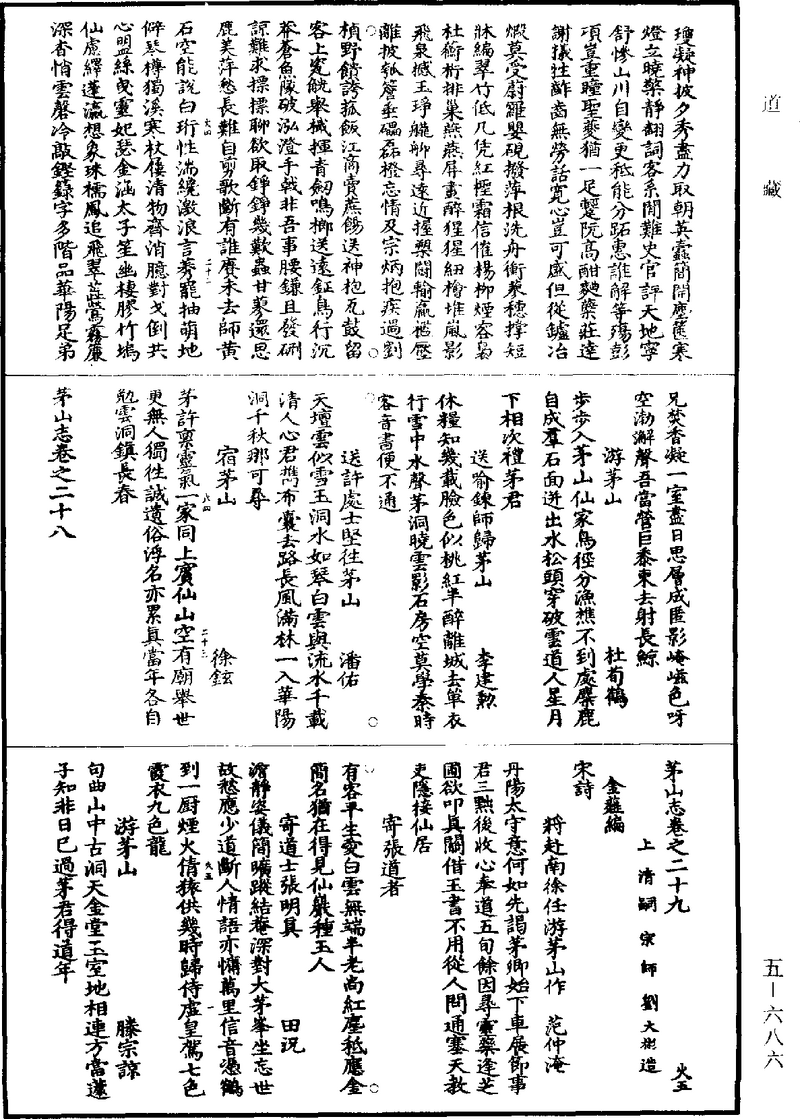 道藏
瓊凝神披夕秀盡力取朝英蠹簡開塵篋寒
燈立曉檠靜翻詞客系閒難史官評天地寧
舒慘山川自變更秪能分跖惠誰解等殤彭
項豈重瞳聖夔猶一足躄阮高酣麴糵莊達
謝犧牲酢齒無勞話寬心豈可盛但從鑪冶
煅莫受尉羅嬰硯撥萍根洗舟衝蓼穗撑短
牀編翠竹低几凭紅檉霜信催楊柳煙容裊
杜蘅桁排巢燕燕屏畫醉猩猩細檜堆嵐影
飛泉撼玉琤 尋遠近握槊鬬輸贏
離披瓠 垂磊磊橙忘情及宗炳抱疾過劉
楨野饋誇菰飯江商賣蔗餳送神抱瓦鼓留
客上 觥舉楫揮青劒鳴榔送遠鉦鳥行沉
莽蒼魚隊破泓澄手戟非吾事腰鎌且發硎
諒難求摽摽聊欲取錚錚幾歎蟲甘蓼還思
鹿美苹愁長難自剪歌斷有誰賡未去師黃
石空能說白珩性湍繞激浪言莠罷抽萌地
僻琴樽獨溪寒杖屨清物齊消臆對戈倒共
心盟絲曳靈妃瑟金涵太子笙幽棲膠竹塢
仙慮繹蓬瀛想象珠襦鳳追飛翠蘂鶯霧簾
深杳悄雲磬冷敲鏗籙字多階品華陽足弟
兄焚香凝一室盡日思層成匿影崦嵫色呀
空渤澥聲吾當營巨黍東去射長鯨
游茅山 杜荀鶴
步步入茅山仙家鳥徑分漁樵不到處麋鹿
自成羣石面迸出水松頭穿破雲道人星月
下相次禮茅君
送喻鍊師歸茅山 李建勲
休糧知幾載臉色似桃紅半醉離城去單衣
行雪中水聲茅洞曉雲影石房空莫學秦時
客音書便不通
送許處士堅往茅山 潘佑
天壇雲似雪玉洞水如琴白雲與流水千載
清人心君攜布囊去路長風滿林一入華陽
洞千秋那可尋
宿茅山 徐鉉
茅許稟靈氣一家同上賓仙山空有廟舉世
更無人獨往誠遺俗浮名亦累真當年各自
勉雲洞鎮長春
茅山志卷之二十八
茅山志卷之二十九 火五
上清嗣宗師劉大彬造
金薤編
宋詩
將赴南徐任游茅山作 范仲淹
丹陽太守意何如先謁茅卿始下車展節事
君三黜後收心奉道五旬餘因尋靈藥逢芝
圃欲叩真關借玉書不用從人問通塞天教
吏隱接仙居
寄張道者
有客平生愛白雲無端半老尚紅塵秪應金
簡名猶在得見仙巖種玉人
寄道士張明真 田況
澹靜姿儀簡曠蹤結菴深對大茅峯坐忘世
故愁應少道斷人情語亦慵萬里信音憑鶴
到一廚煙火倩猿供幾時歸侍虛皇駕七色
霞衣九色龍
游茅山 滕宗諒
句曲山中古洞天金堂玉室地相連方當蘧
子知非日已過茅君得道年
五—六八六